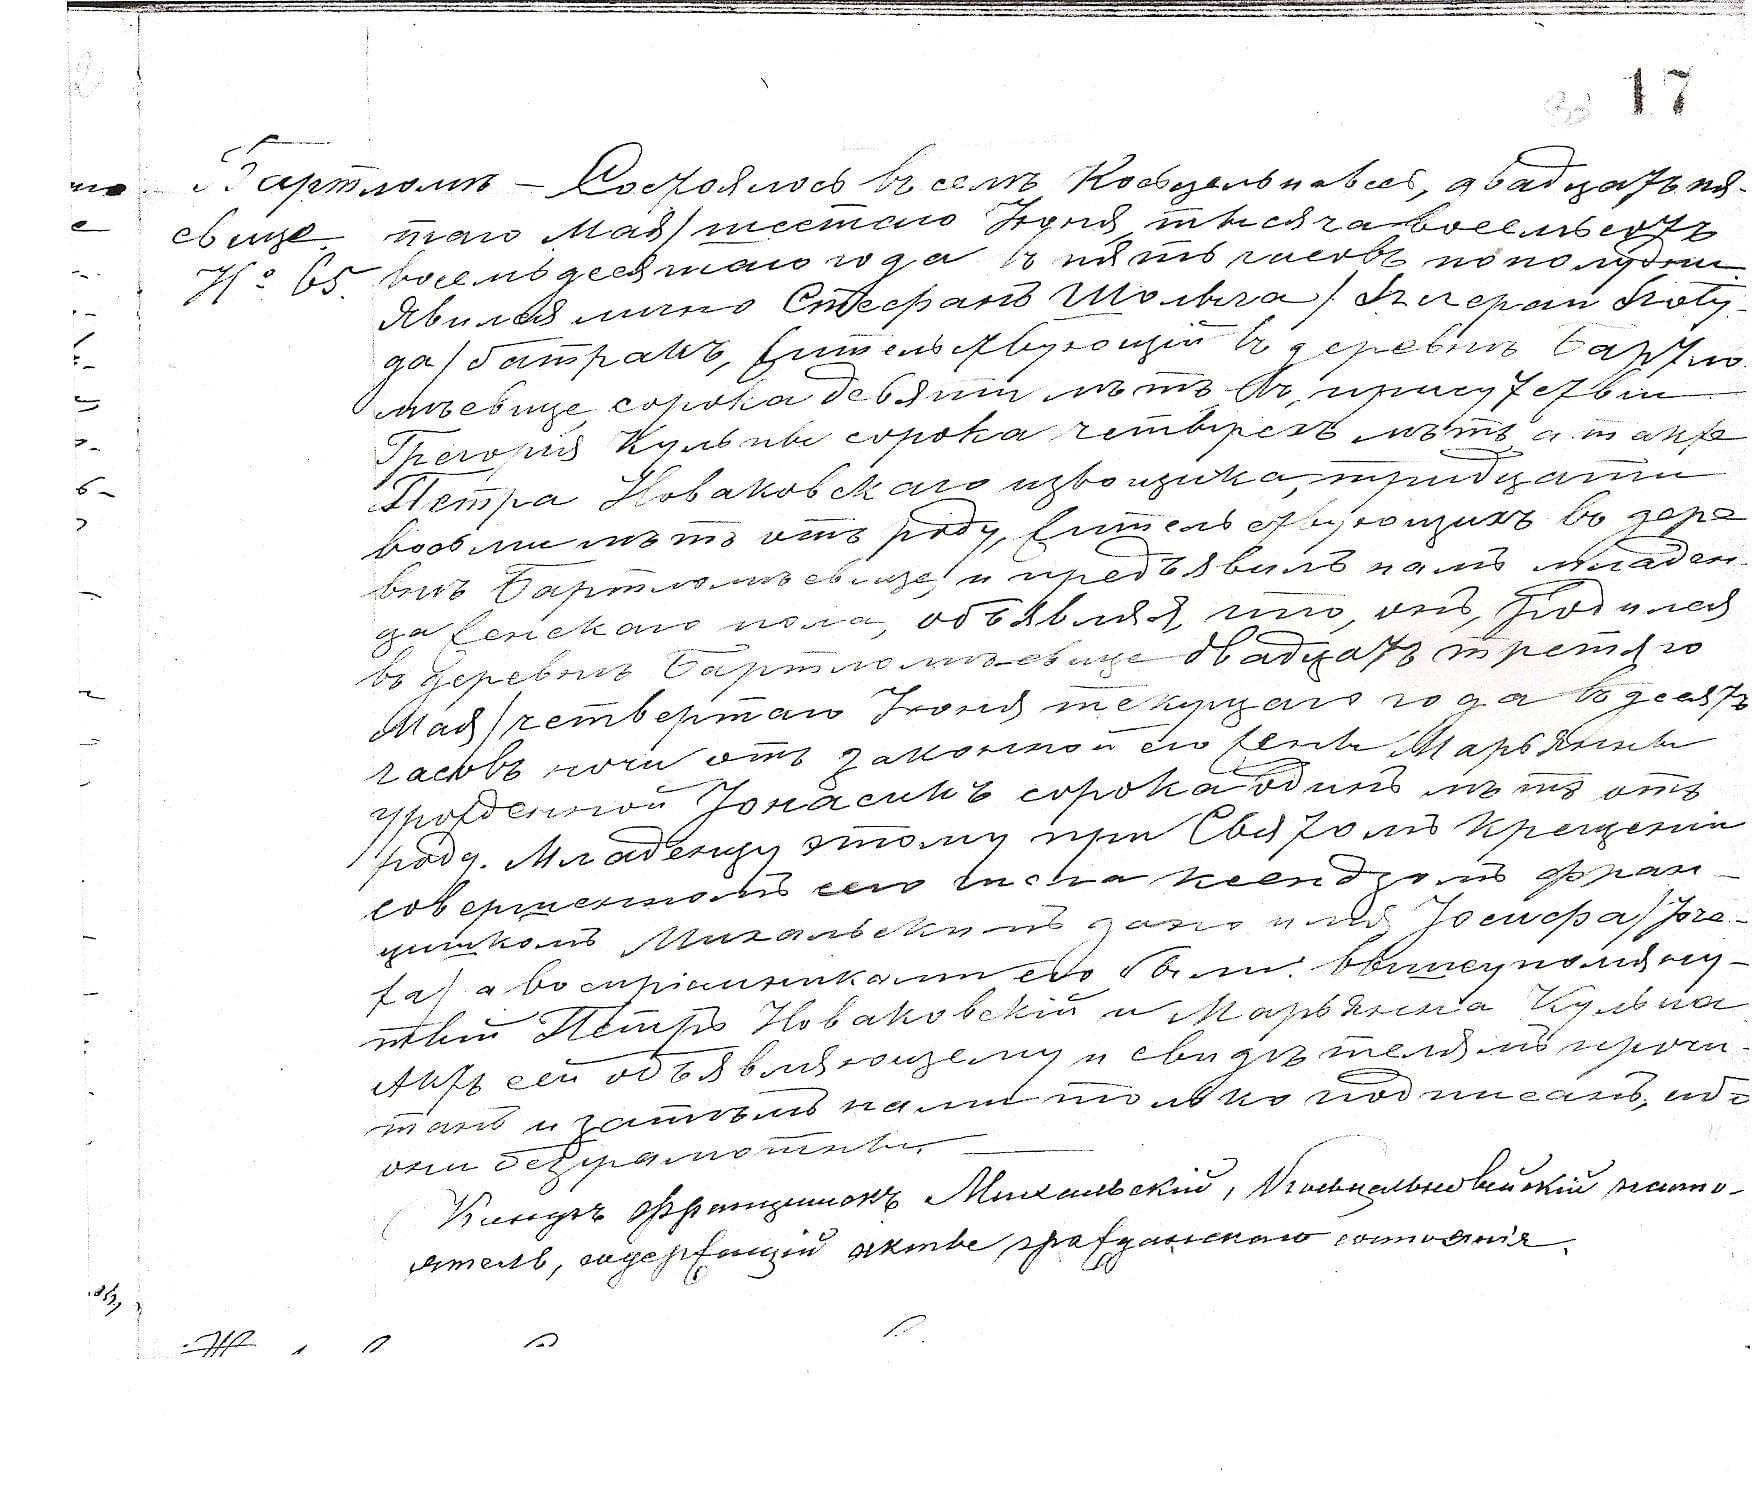 17
Бартломѣ-
евице.
№ 65.
Состоялось въ селѣ Косцельнавесь, двадцать пя-
таго Мая/шестаго Іюня тысяча восемьсотъ
восемьдесятаго года въ пять часовъ пополудни.
Явился лично Стефанъ Шолыга /
да/ батракъ, жительствующій въ деревнѣ Бартло-
мѣевице, сорока девяти лѣтъ въ присутствіи
Грегорія Кульпы сорока четырехъ лѣтъ, а также
Петра Новаковскаго извощика, тридцати
восьми лѣтъ отъ роду, жительствующихъ въ дере
внѣ Бартломѣевице, и предъявилъ намъ младен-
ца женскаго пола, объявляя, что, онъ, родился
въ деревнѣ Бартломѣевице двадцать третяго
Мая/четвертаго Іюня текущаго года въ десять
часовъ ночи отъ законной его жены Марьянны
урожденной Іонасикъ сорока одинъ лѣтъ отъ
роду. Младенцу этому при Святомъ Крещеніи
совершенномъ сего числа ксендзомъ Фран-
цишкомъ Михальскимъ дано имя Іосифа/Joze-
fa/ а воспріемниками его были: вышеупомяну-
тый Петръ Новаковскій и Марьянна Кульпа
Актъ сей объявляющему и свидѣтелямъ прочи-
танъ и затѣмъ нами только подписанъ, ибо
они безграмотны.
Ксендзъ Францишекъ Михальскій, Косцельновейскій насто-
ятель, содержащій акты гражданскаго состоянія.